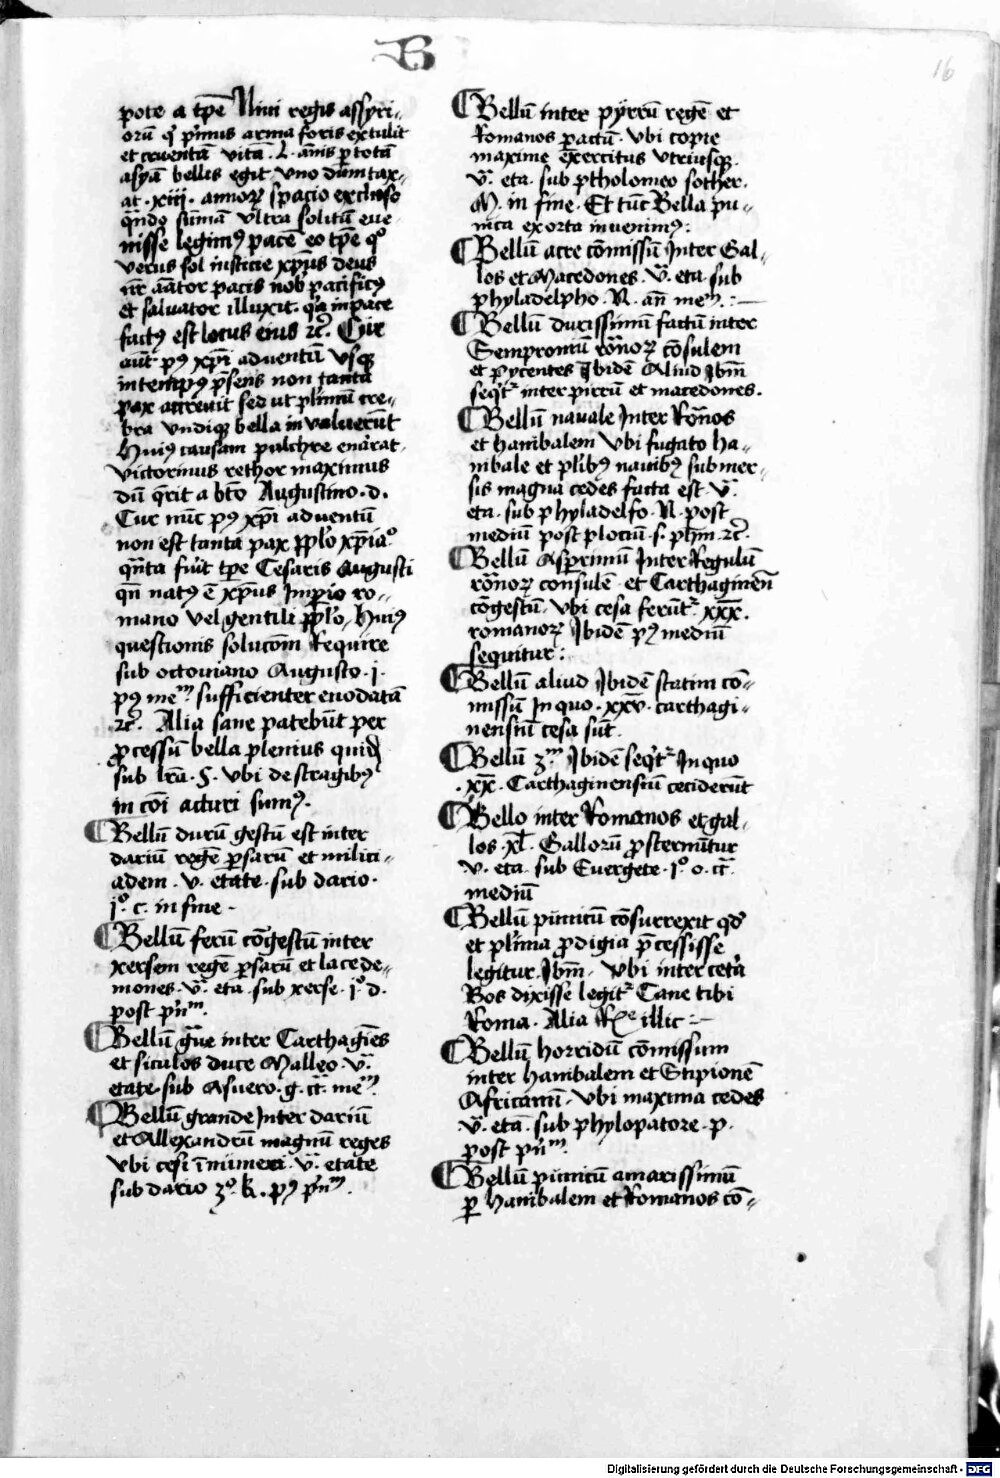 B
16
pote a tp̄e Nini regis assyri-
orū qͥ pͥmus arma foris extulit
et cruentā vitā .L. ānis ꝑ totā
asyā bellis egit vno dūtax-
at .xiii. annoꝝ spacio excluso
qn̄do sūmā vltra solitū eue-
nisse legimꝰ pacē eo tp̄e qͦ
verus sol iusticie xp̄us deus
nr̄ aūtor pacis nob̄ pacificꝰ
et saluator illuxit. qͥa in pace
factꝰ est locus eius ⁊c̄.
aūt pꝰ xp̄i aduentū vsqꝫ
in tempꝰ p̄sens non tanta
pax accreuit sed ut plͥimū cre-
bra vndiqꝫ bella inualuerūt
Huiꝰ causam pulchre enarrat
victorinus rethor maximus
dū q̄rit a btō Augustino .d.
Cur nūc pꝰ xp̄i aduentū
non est tanta pax ppl̄o xp̄iaͦ.
qn̄ta fuit tp̄e Cesaris Augusti
qn̄ natꝰ ē xp̄us Imꝑio ro-
mano vel gentili ppl̄o. Huiꝰ
questionis solucōm Require
sub octouiano Augusto .i.
pꝰ meᵐ sufficienter enodatā
⁊c̄. Alia sane patebūt per
ꝓcessū bella plenius quidē
sub lr̄u .S. vbi de stragibꝰ
in cōi acturi sumꝰ.
¶ Bellū durū gestū est inter
dariū regē ꝑsarū et milici-
adem .v. etate sub dario.
iͦ. c. in fine.
¶ Bellū ferū cōgestū inter
xersem regē ꝑsarū et lacede-
mones .v̄. eta. sub xerse .iͦ. d.
post pn̄ᵐ.
¶ Bellū gͣue inter Carthagiēs
et siculos duce Malleo .v̄.
etate sub Asuero .g. cͣ. meᵐ.
¶ Bellū grande Inter dariū
et Allexandrū magnū reges
vbi cesi īnumeri .v̄. etate
sub dario 3ͦ. k. pꝰ pͥnᵐ.
¶ Bellū inter pÿrrū regē et
Romanos ꝑactū. vbi copie
maxime exercitus vtriusqꝫ.
v̄. eta. sub ptholomeo sother.
M. in fine. Et tūc Bella pu-
nica exorta inuenimꝰ:
¶ Bellū acre cōmissū Inter Gal-
los et Macedones. v̄. eta. sub
phyladelpho .N. an̄ meᵐ.
¶ Bellū durissimū factū inter
Semproniū rōnoꝝ cōsulem
et pycentes Ibidē Aliud Ibm̄
seqͥtͬ inter pirrū et macedones.
¶ Bellū nauale Inter Rōnos
et hanibalem vbi fugato ha-
nibale et plͥibꝰ nauibꝰ submer-
sis magna cedes facta est .v̄.
eta. sub phyladelfo .N. post
mediū post plociū .s. phm̄ ⁊c̄.
¶ Bellū Asꝑrimū Inter Regulū
rōnoꝝ consulē et Carthaginēn
cōgestū. vbi cesa ferūtͬ xxx̄.
romanoꝝ Ibidē pꝰ mediū
sequitur:
¶ Bellū aliud Ibidē statim cō-
missū In quo .xxv̄. carthagi-
nensiū cesa sūt.
¶ Bellū 3ᵐ Ibidē seqͥtͬ In quo
.xx̄. Carthaginensiū ceciderūt
¶ Bello inter Romanos et gal-
los .xl̄. Gallorū ꝓsternūtur
v. eta. sub Euergete .iͦ. o. cͣ.
mediū
¶ Bellū punicū cōsurrexit qd̄
et plͥima ꝓdigia p̄cessisse
legitur. Ibm̄. vbi inter cetͣa
Bos dixisse legitͬ Caue tibi
Roma. Alia Rͤe illic:
¶ Bellū horridū cōmissum
inter hanibalem et Scipionē
Africanū. vbi maxima cedes
v̄. eta. sub phylopatore .p.
post pn̄ᵐ.
¶ Bellū punicū amarissimū
ꝑ Hanibalem et Romanos cō-
Digitalisierung gefördert durch die Deutsche Forschungsgemeinschaft - DFG